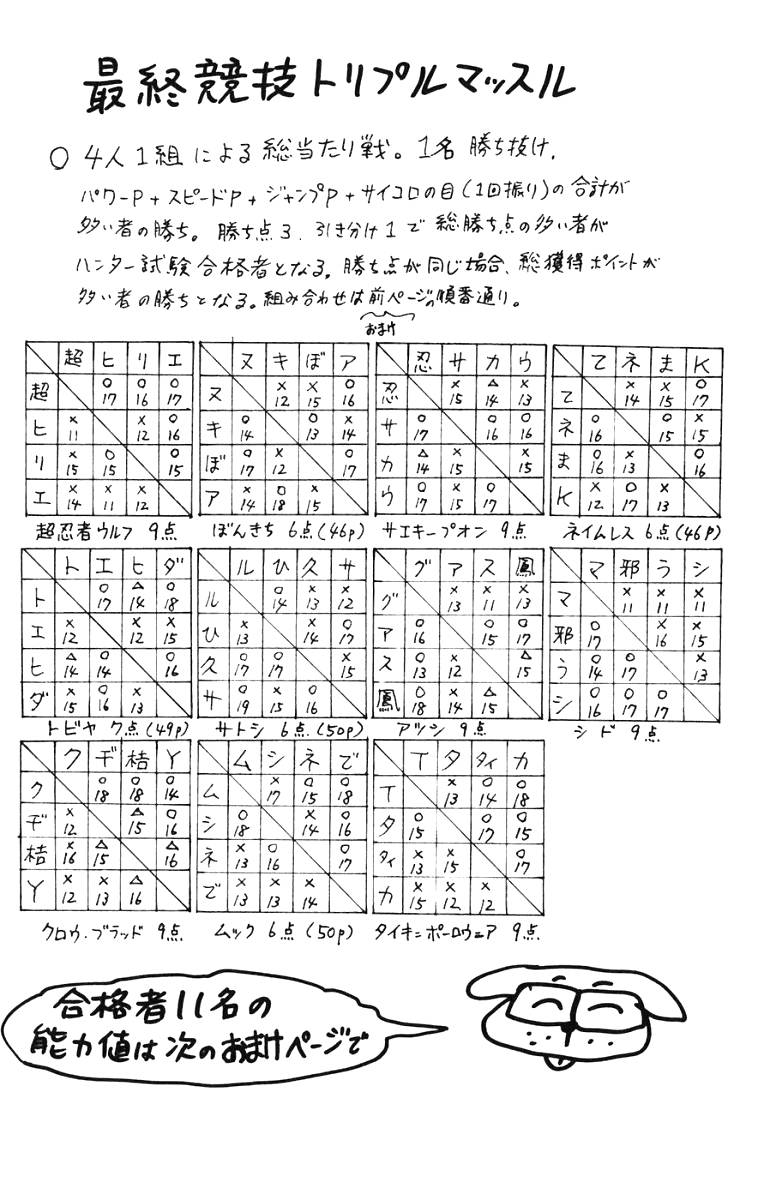 最終競技トリプルマッスル
○ 4人1組による総当たり戦。1名勝ち抜け.
パワーP+スピードP+ジャンプP+サイコロの目(1回振り)の合計が
多い者の勝ち。勝ち点3.引き分け1で総勝ち点の多い者が
ハンター試験合格者となる。勝ち点が同じ場合、総獲得ポイントが
多い者の勝ちとなる。組み合わせは前ページの順番通り。
おまけ
超 ヒ リ エ
超 ○17 ○16 ○17
ヒ ×11 ×12 ○16
リ ×15 ○15 ○15
エ ×14 ×11 ×12
超忍者ウルフ 9点
ヌ キ ぼ ア
ヌ ×12 ×15 ○16
キ ○14 ○13 ×14
ぼ ○17 ×12 ○17
ア ×14 ○18 ×15
ぼんきち 6点(46P)
忍 サ カ ウ
忍 ×15 △14 ×13
サ ○17 ○16 ○16
カ △14 ×15 ×15
ウ ○17 ×15 ○17
サエキープオン 9点
て ネ ま K
て ×14 ×15 ○17
ネ ○16 ○15 ×15
ま ○16 ×13 ○16
K ×12 ○17 ×13
ネイムレス 6点(46P)
ト エ ヒ ダ
ト ○17 △14 ○18
エ ×12 ×12 ×15
ヒ △14 ○14 ○16
ダ ×15 ○16 ×13
トビヤ 7点(49P)
ル ひ 久 サ
ル ○14 ×13 ×12
ひ ×13 ×14 ○17
久 ○17 ○17 ×15
サ ○19 ×15 ○16
サトシ 6点.(50P)
グ ア ス 鳳
グ ×13 ×11 ×13
ア ○16 ○15 ○17
ス ○13 ×12 △15
鳳 ○18 ×14 △15
アツシ 9点
マ 邪 う シ
マ ×11 ×11 ×11
邪 ○17 ×16 ×15
う ○14 ○17 ×13
シ ○16 ○17 ○17
シド 9点
ク ヂ 桔 Y
ク ○18 ○18 ○14
ヂ ×12 △15 ○16
桔 ×16 △15 △16
Y ×12 ×13 △16
クロウ・ブラッド 9点
ム シ ネ で
ム ×17 ○15 ○18
シ ○18 ×14 ○16
ネ ×13 ○16 ○17
で ×13 ×13 ×14
ムック 6点(50P)
T タ タイ カ
T ×13 ○14 ○18
タ ○15 ○17 ○15
タイ ×13 ×15 ○17
カ ×15 ×12 ×12
タイキ=ポーロウニア 9点
合格者11名の
能力値は次のおまけページで